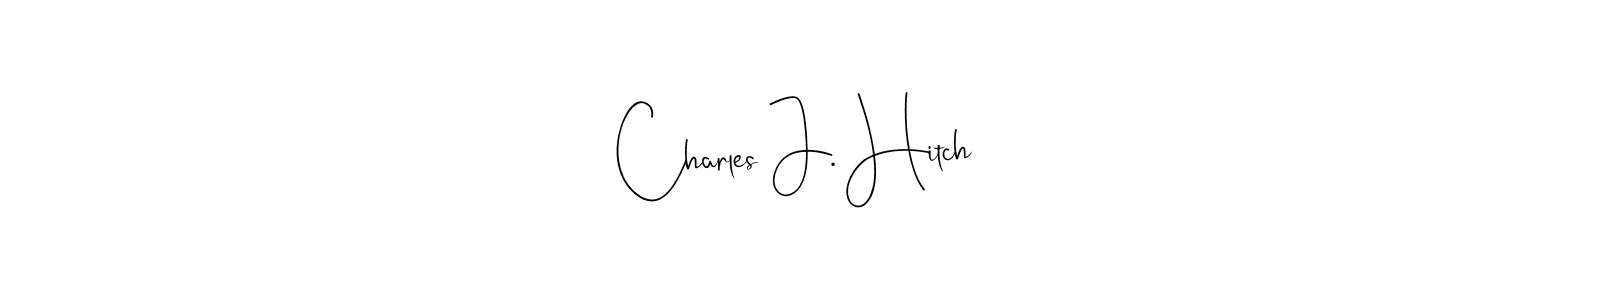 Charles J. Hitch